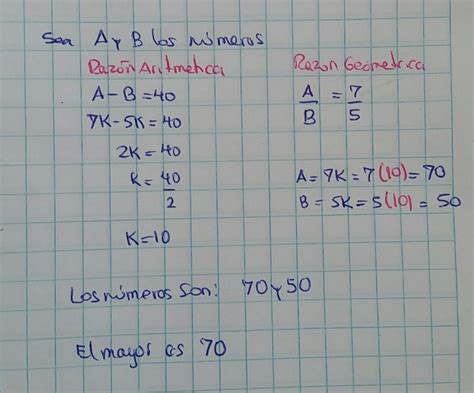 Sea A y B los números
Razón Aritmetica
A - B = 40
7K - 5K = 40
2K = 40
K = 40/2
K = 10
Razon Geometrica
A/B = 7/5
A = 7K = 7(10) = 70
B = 5K = 5(10) = 50
Los números son: 70 y 50
El mayor es 70